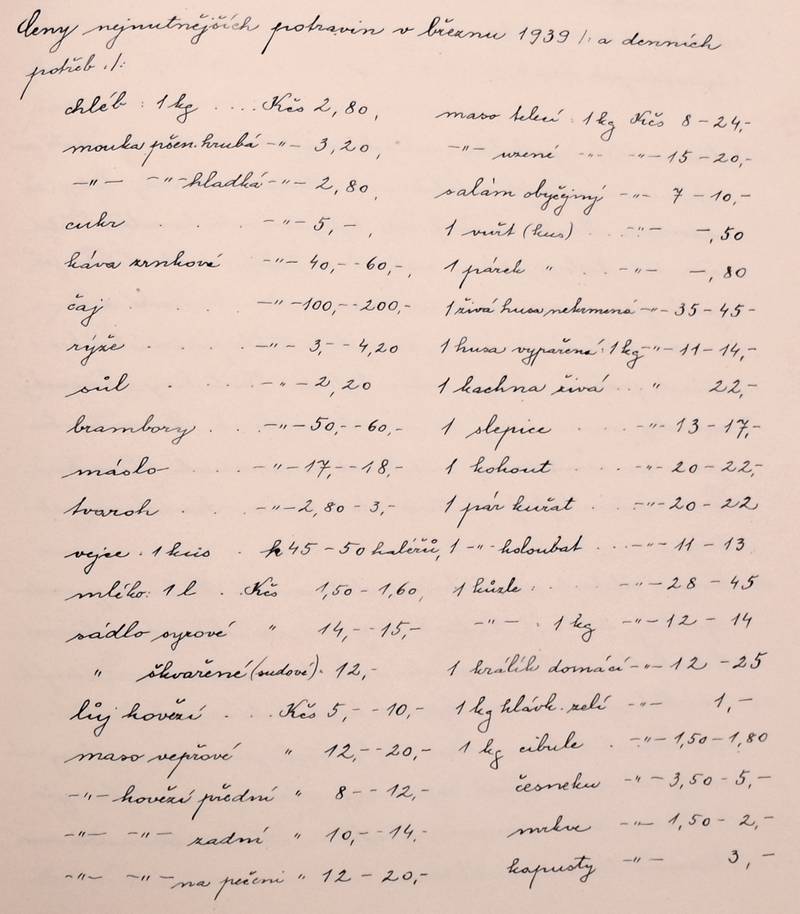 Ceny nejnutnějších potravin v březnu 1939 /: a denních
potřeb :/:
chléb : 1 kg .... Kčs 2,80,
mouka pšen. hrubá -"- 3,20,
-"- -"- hladká -"- 2,80,
cukr . . . -"- 5,-,
káva zrnková -"- 40,- - 60,-,
čaj . . . -"- 100,- - 200,-
rýže . . . -"- 3,- - 4,20
sůl . . . . -"- 2,20
brambory . . . -"- 50,- - 60,-
máslo . . . -"- 17,- - 18,-
tvaroh . . . -"- 2,80 - 3,-
vejce . 1 kus . k 45 - 50 haléřů,
mléko: 1 l . . Kčs 1,50 - 1,60,
sádlo syrové " 14,- - 15,-
" škvařené (sudové) . 12,-
lůj hovězí . . . Kčs 5,- - 10,-
maso vepřové " 12,- - 20,-
-"- hovězí přední " 8 - - 12,-
-"- -"- zadní " 10,- - 14,-
-"- -"- na pečeni " 12 - 20,-
maso telecí : 1 kg Kčs 8 - 24,-
-"- uzené -"- -"- 15 - 20,-
salám obyčejný -"- 7 - 10,-
1 vuřt (kus) . . -"- -,50
1 párek " . . -"- -,80
1 živá husa nekrmená -"- 35 - 45 -
1 husa vypařená : 1 kg -"- 11 - 14,-
1 kachna živá . . . " 22,-
1 slepice . . . -"- 13 - 17,-
1 kohout . . . -"- 20 - 22,-
1 pár kuřat . . . -"- 20 - 22
1 -"- holoubat . . . -"- 11 - 13
1 kůzle . . . -"- 28 - 45
-"- . 1 kg -"- 12 - 14
1 králík domácí -"- 12 - 25
1 kg hlávk. zelí -"- 1,-
1 kg cibule . -"- 1,50 - 1,80
česneku -"- 3,50 - 5,-
mrkve -"- 1,50 - 2,-
kapusty -"- 3,-